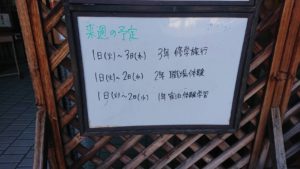 来週の予定
1日(火)～3日(木) 3年 修学旅行
1日(火)～2日(水) 2年 職場体験
1日(火)～2日(水) 1年 宿泊体験学習